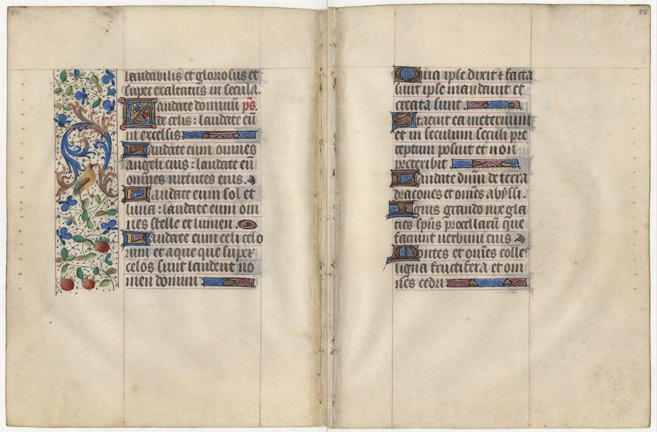 laudabilis et gloriosus et
super exaltatus in secula.
Laudate dominum ps
de celis: laudate eū
in excelsis
Laudate eum omnes
angeli eius: laudate eū
omnes uirtutes eius.
Laudate eum sol et
luna: laudate eum om
nes stelle et lumen.
Laudate eum celi celo
rum et aque que super
celos sunt laudent no
men domini
Quia ipse dixit & facta
sunt ipse mandauit et
creata sunt.
Statuit ea in eternum
et in seculum seculi pre
ceptum posuit et non
preteribit
Laudate dnm de terra
dracones et omēs abyssi.
Ignis grando nix gla
cies spūs procellarū que
faciunt uerbum eius
Montes et omēs colles
ligna fructifera et om
nes cedri